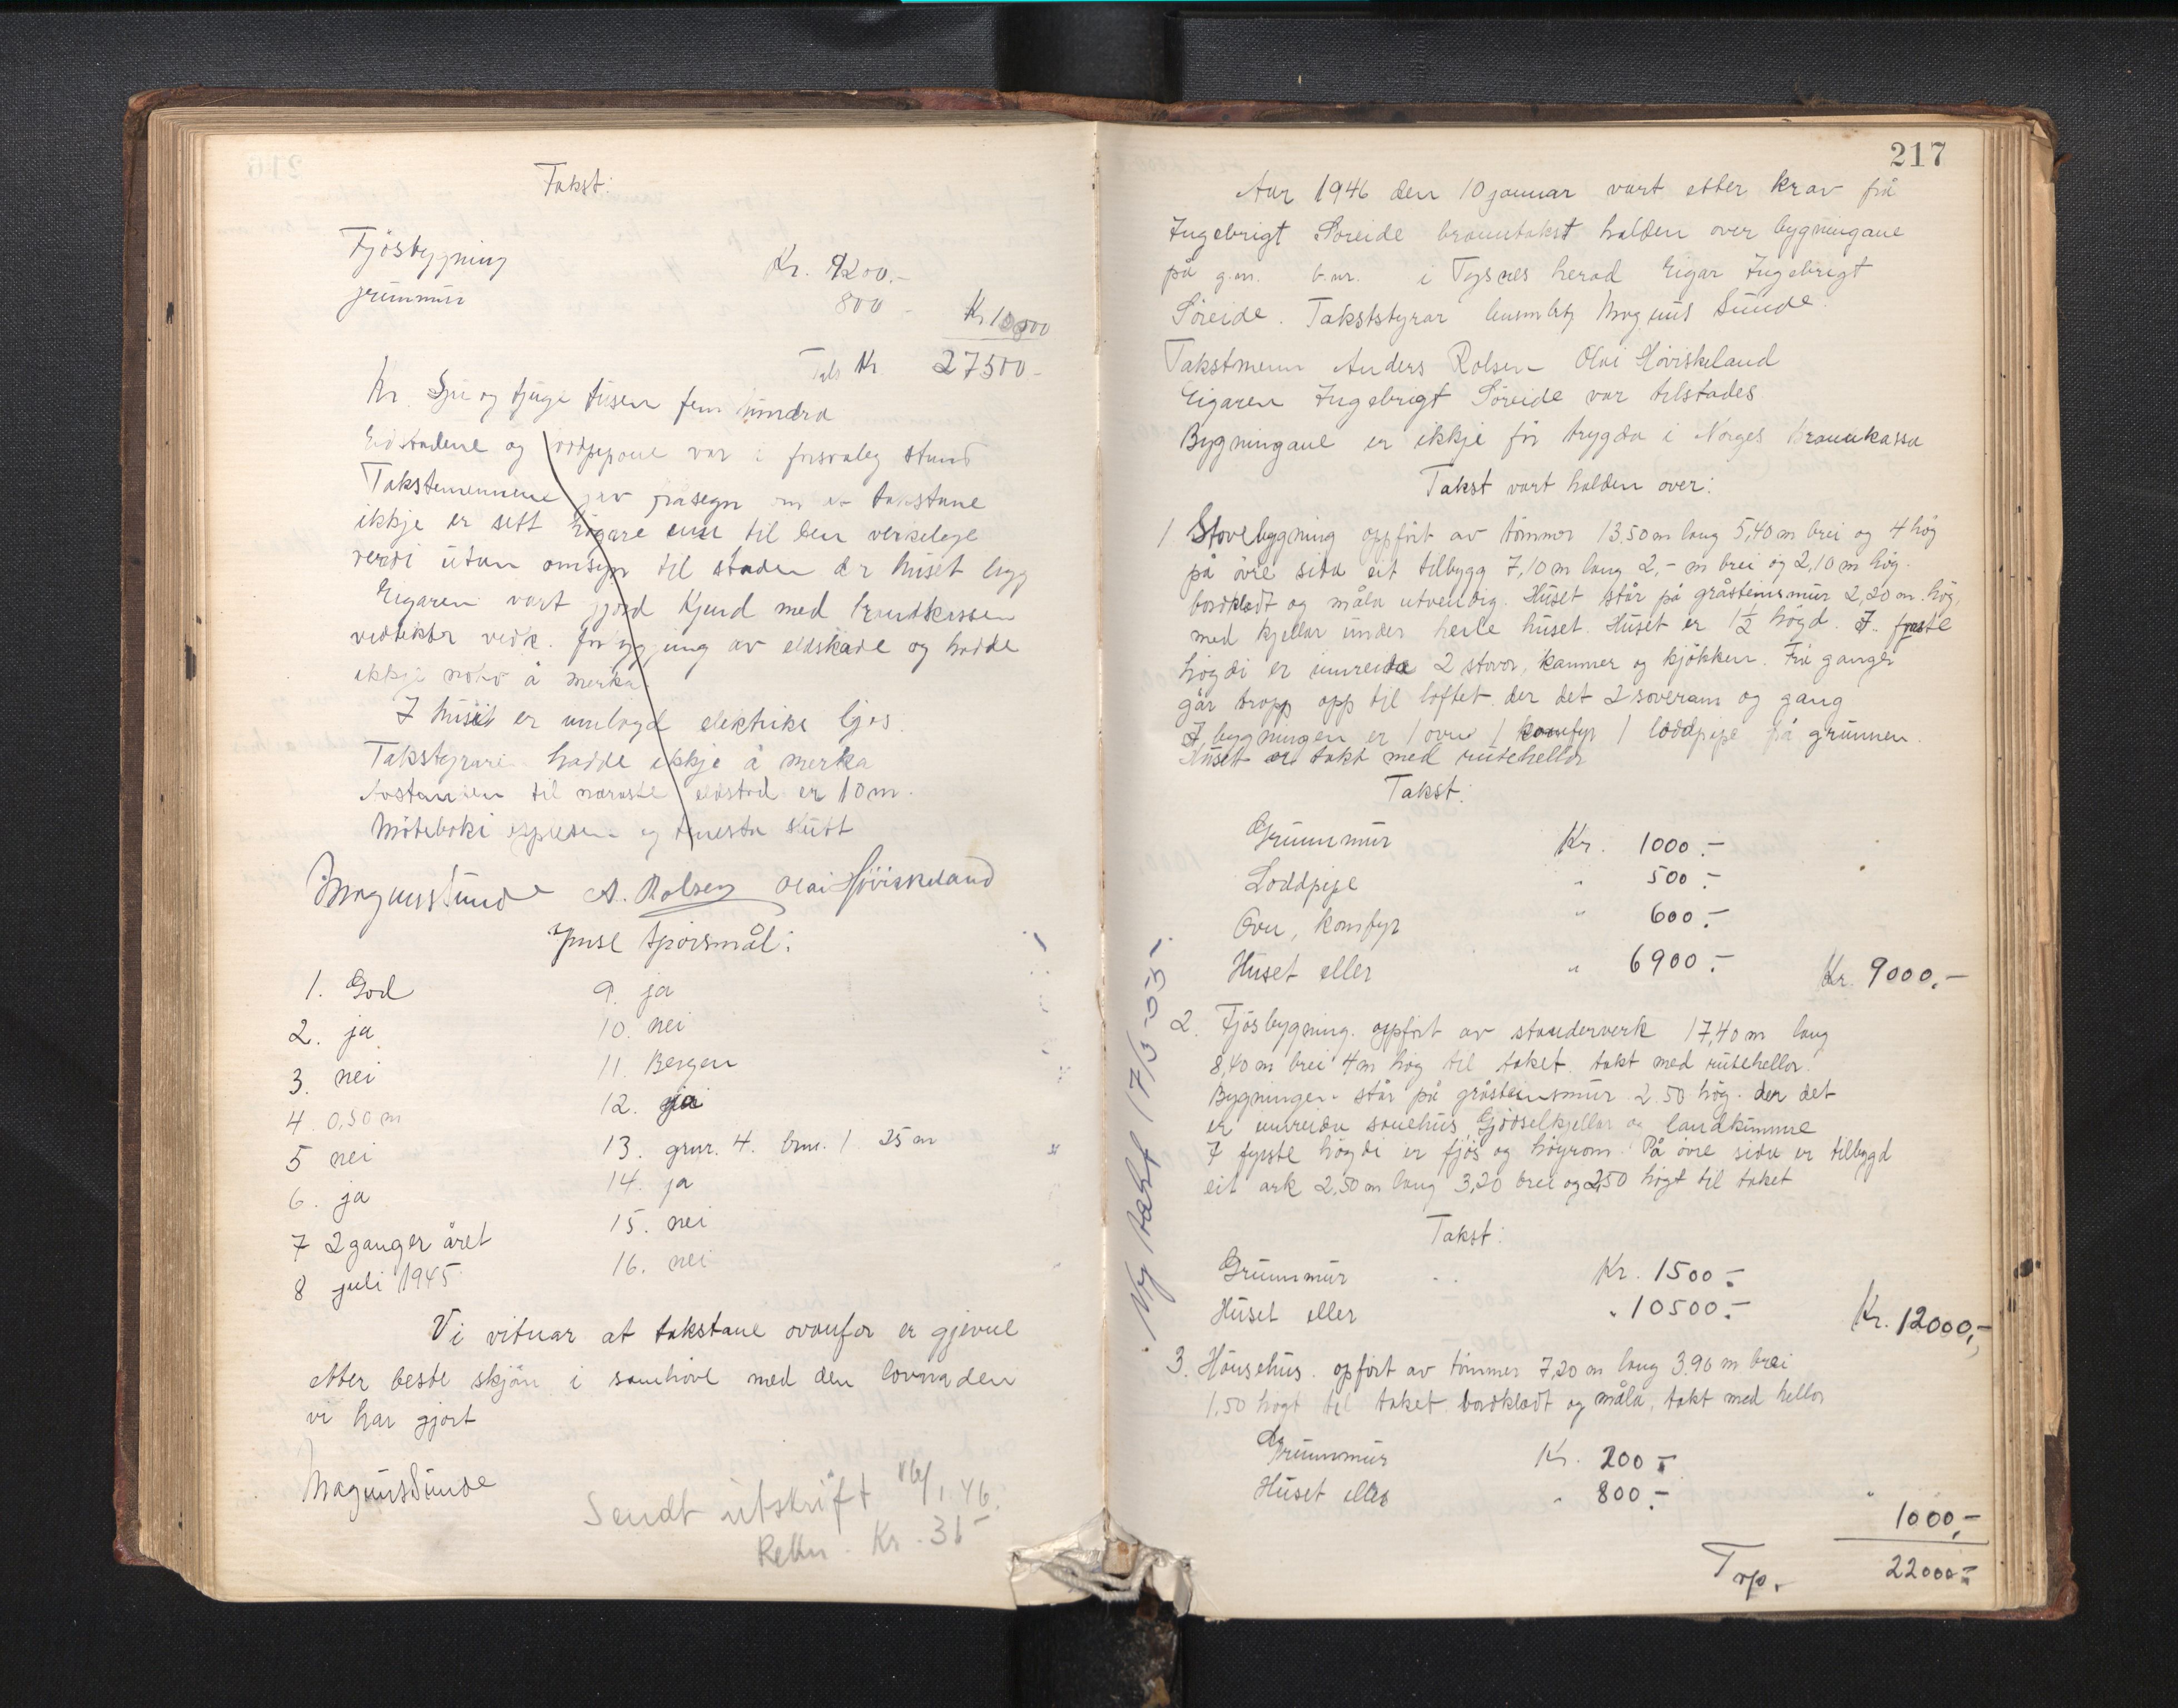 Takst:
Fjösbygning Kr. 9200.-
grunnmur 800 - Kr 10000
Tils Kr 27500-
Kr. Sju og tjuge tusen fem hundra
Eldstadene og loddpipone var i forsvaleg stand
Takstmennene gav fråsegn om at takstane
ikkje er sett högare enn til den verkelege
verdi utan omsyn til staden der huset ligg
Eigaren vart gjord kjend med brandkassen
vedtekter vedk. forbygging av eldskade og hadde
ikkje noko å merka
I huset er innlagd elektrisk ljos.
Takstyraren hadde ikkje å merka
Avstanden til næraste eldstad er 10 m.
Möteboki opplesen og tenesta slutt
Magnus Sunde A. Rolsen Olai Höviskeland
Ymse spörsmål:
1. God
2. ja
3. nei
4. 0,50 m
5 nei
6. ja
7 2 ganger året
8 juli 1945
9. ja
10. nei
11. Bergen
12. ja
13. gnr. 4. bnr. 1 25 m
14. ja
15. nei
16. nei
Vi vitnar at takstane ovanfor er gjevne
etter beste skjön i samhöve med den lovnaden
vi har gjort
Magnus Sunde
Sendt utskrift 16/1.46.
Rekn. Kr. 36-
217
Aar 1946 den 10 januar vart etter krav frå
Ingebrigt Söreide branntakst halden over bygningane
på g.nr. b.nr. i Tysnes herad Eigar Ingebrigt
Söreide. Takststyrar lensm btj Magnus Sunde.
Takstmenn Anders Rolsen Olai Höviskeland
Eigaren Ingebrigt Söreide var tilstades
Bygningane er ikkje för trygda i Norges Brannkassa
Takst vart halden over:
1 Stovebygning oppfört av tömmer 13.50 m lang 5,40 m brei og 4 hög
på övre sida eit tilbygg 7,10 m lang 2,- m brei og 2,10 m hög.
bordkledt og måla utvendig. Huset står på gråsteinsmur 2,20 m. hög,
med kjellar under heile huset. Huset er 1½ högd. I fyrste
högdi er innreida 2 stovor, kammer og kjökken. Frå gangen
går tropp opp til loftet der det 2 soverom og gang
I bygningen er 1 ovn 1 komfyr 1 loddpipe på grunnen.
Huset er takt med rutehellor
Takst:
Grunnmur Kr. 1000.-
Loddpipe " 500.-
Ovn, komfyr " 600.-
Huset eller " 6900.- Kr. 9000.-
2. Fjösbygning. oppfört av standerverk 17,40 m lang
8,40 m brei 4 m hög til taket. takt med rutehellor.
Bygningen står på gråsteinsmur 2.50 hög. der det
er innreidn sauehus, Gjödselkjellar og landkumme
I fyrste högdi er fjös og höyrom. På övre sida er tilbygd
eit ark 2,50 m lang 3,20 brei og 2,50 högt til taket
Takst:
Grunnmur Kr. 1500.-
Huset eller " 10500.- Kr. 12000,-
3. Hönsehus. opfört av tömmer 7,20 m lang 3.90 m brei
1.50 högt til taket. bordkledt og måla, takt med hellor
Grunnmur Kr. 200.-
Huset elles " 800.- " 1000,-
Trp. 22000.-
Ny takst 17/3-55-